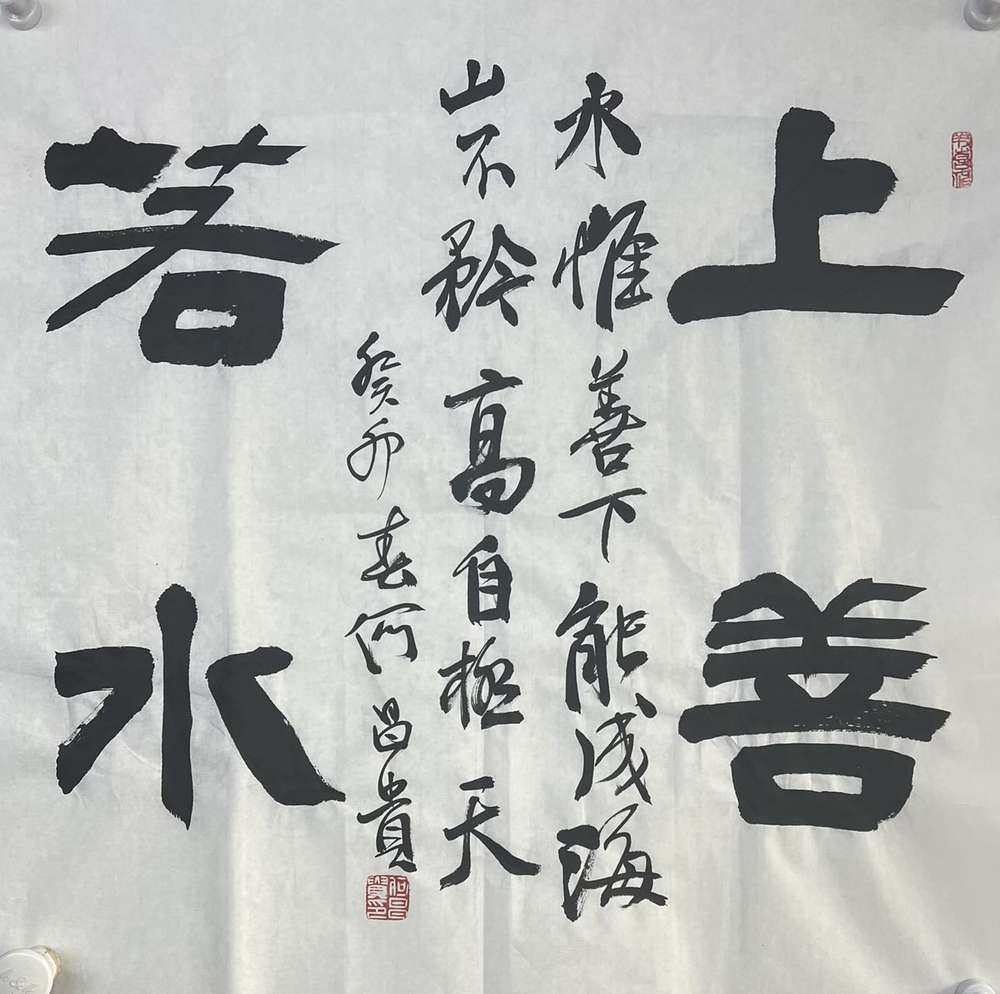 上善
水惟善下能成海
山不矜高自极天
若水
癸卯春何昌贵